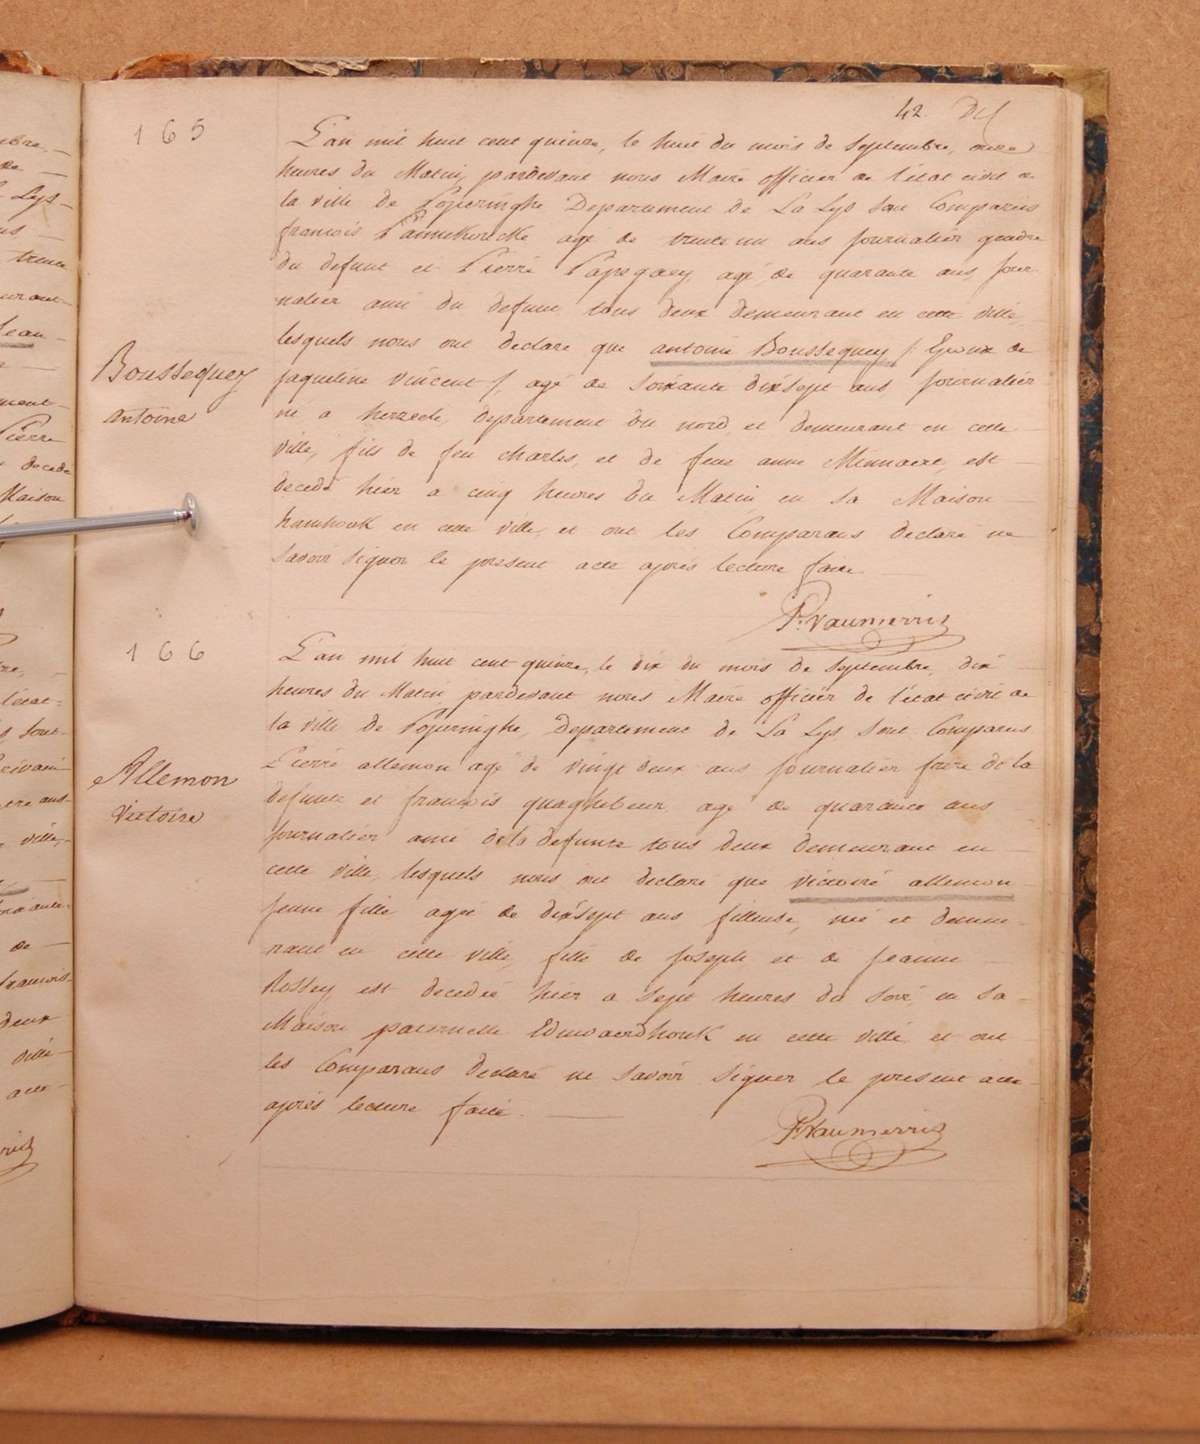 42
165
L'an mil huit cent quinze, le huit du mois de Septembre, onze
heures du Matin, pardevant nous Maire officier de l'état civil de
la ville de Poperinghe Departement de La Lys sont Comparus
françois Pannekoecke agé de trente un ans journalier gendre
du defunt et Pierre agé de quarante ans jour-
nalier ami du defunt tous deux demeurant en cette ville,
lesquels nous ont declare que antoine Boussequey /: Epoux de
Boussequey
antoine
jaqueline Vincent /, agé de soixante dixsept ans, journalier
né a herzeele, departement du nord et demeurant en cette
ville, fils de feu charles, et de feue anne Minnaert, est
decedé hier a cinq heures du Matin en sa Maison
hamhouk en cette ville, et ont les Comparans declaré ne
savoir signer le present acte après lecture faite
P. Vanmerris
166
L'an mil huit cent quinze, le dix du mois de Septembre, dix
heures du Matin pardevant nous Maire officier de l'état civil de
la ville de Poperinghe, Departement de La Lys sont Comparus
Allemon
Victoire
Pierre allemon agé de vingt deux ans journalier frère de la
defunte et françois quaghebeur agé de quarante ans
journalier ami de la defunte tous deux demeurant en
cette ville, lesquels nous ont declaré que victoire allemon
jeune fille agée de dixsept ans fileuse, née et demeu-
rant en cette ville, fille de joseph et de jeanne
Rossey est decedée hier a sept heures du soir, en sa
Maison paternelle Edewaerdhouk en cette ville et ont
les Comparans declaré ne savoir signer le present acte
après lecture faite.
P. Vanmerris